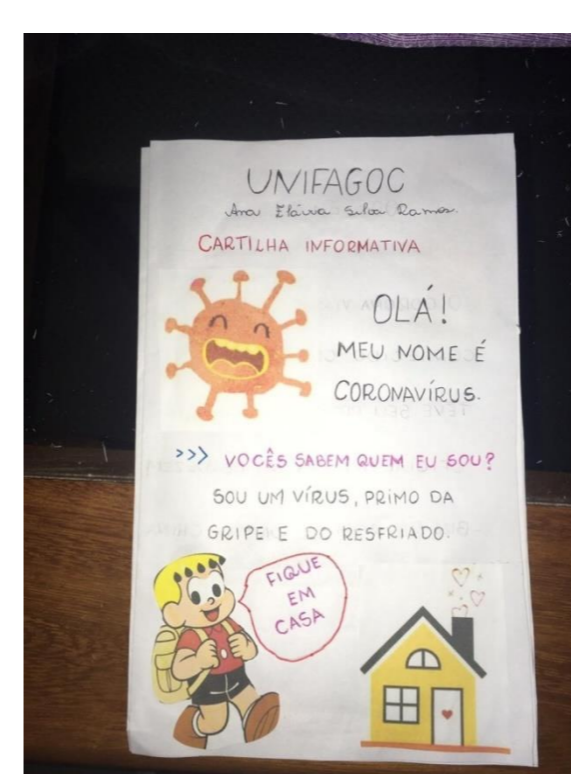 UNIFAGOC
Ana Flávia Silva Ramos.
CARTILHA INFORMATIVA
OLÁ!
MEU NOME É
CORONAVÍRUS.
>>> VOCÊS SABEM QUEM EU SOU?
SOU UM VÍRUS, PRIMO DA
GRIPE E DO RESFRIADO.
FIQUE
EM
CASA